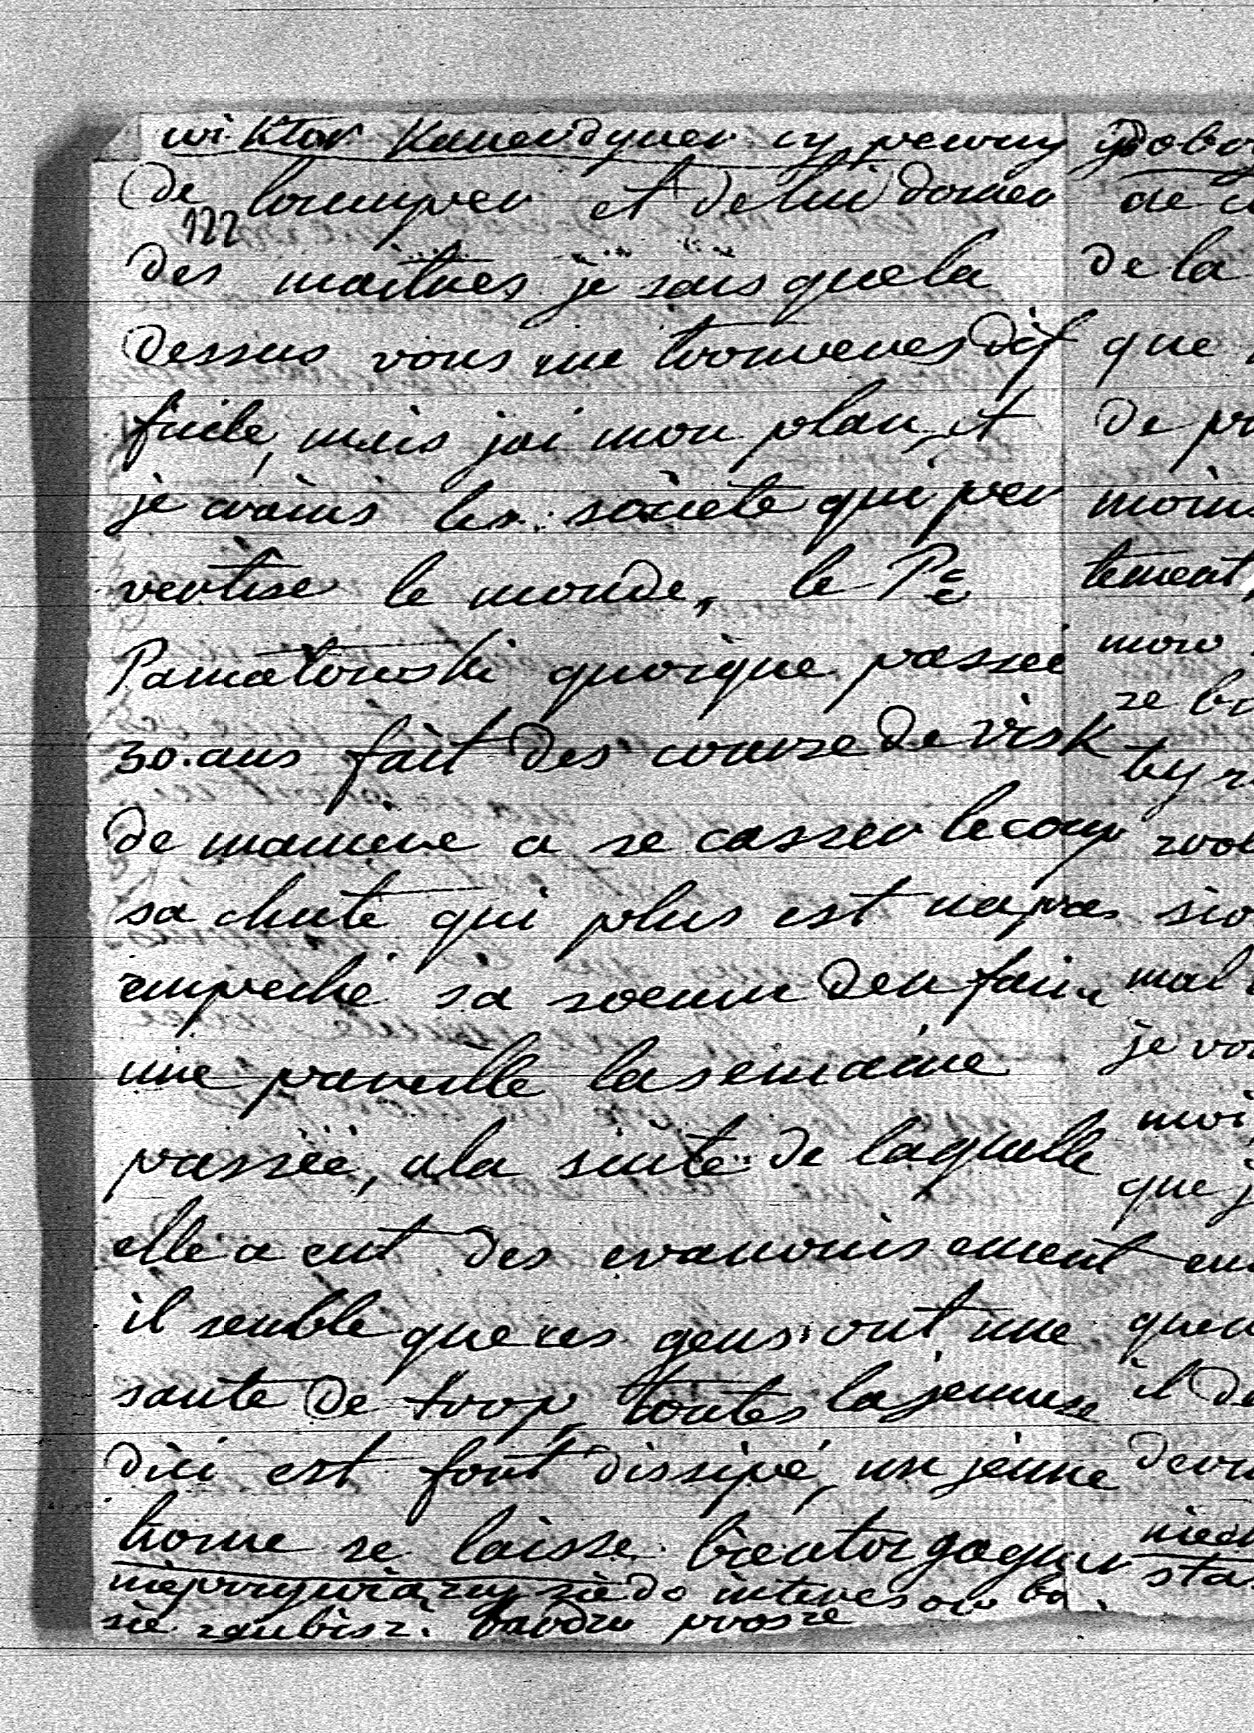 wiktor Kamerdyner cy pewny
de louuper et de lui donner
122
des maitres je sais que la
dessus vous me trouveres dif
ficile, mais jai mon plan, et
je crains les sòciete qui per
vertise le monde, le P=ce
Pamatowski quoique passée
30. ans fait des course de risk
de maniere a se casser le coup
sa chute qui plus est napas
empeché sa soeur den faire
une pareille la semaine
passèè, a la suite de laquelle
elle a eut des evanouisement
il semble que ces gens ont une
sante de trop, toutes la jeunese
dici est fort dissipé, un jeune
home se laisse bientot gagner
nieprzywiązuy sie do interesow bo
sie zgubisz. bardzo prosze
dobo
de la
que
de pr
moins
tement,
mow
ze
by
mal
je vou
moi
que j
il de
sta